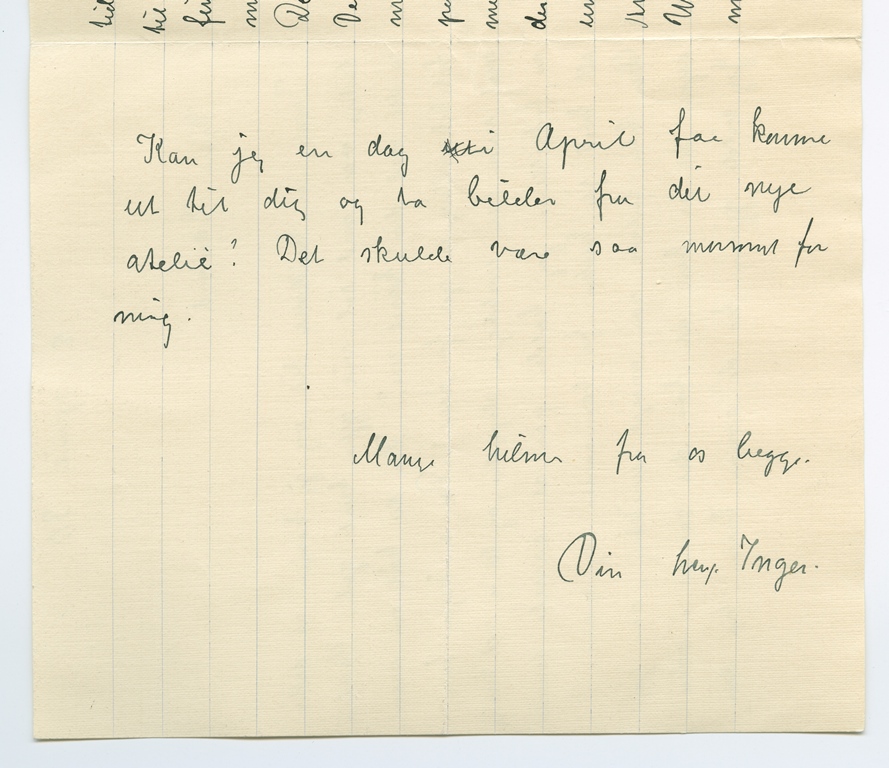 Kan jeg en dag i April faa komme
ut til dig og ta bilder fra dit nye
atelie? Det skulde være saa morsomt for
mig.
Mange hilsner fra os begge.
Din heng. Inger.
til
til
De
De
m
m